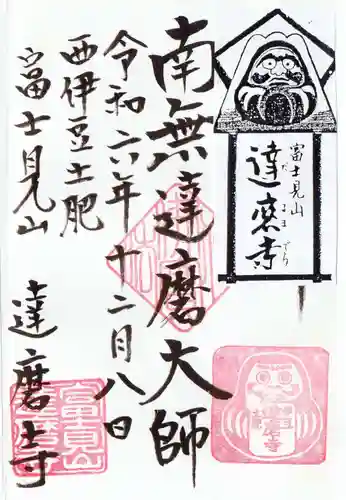 富士見山
達磨寺
だるまでら
南無達磨大師
令和六年十二月八日
西伊豆土肥
富士見山
達磨寺
富士見山
達磨寺